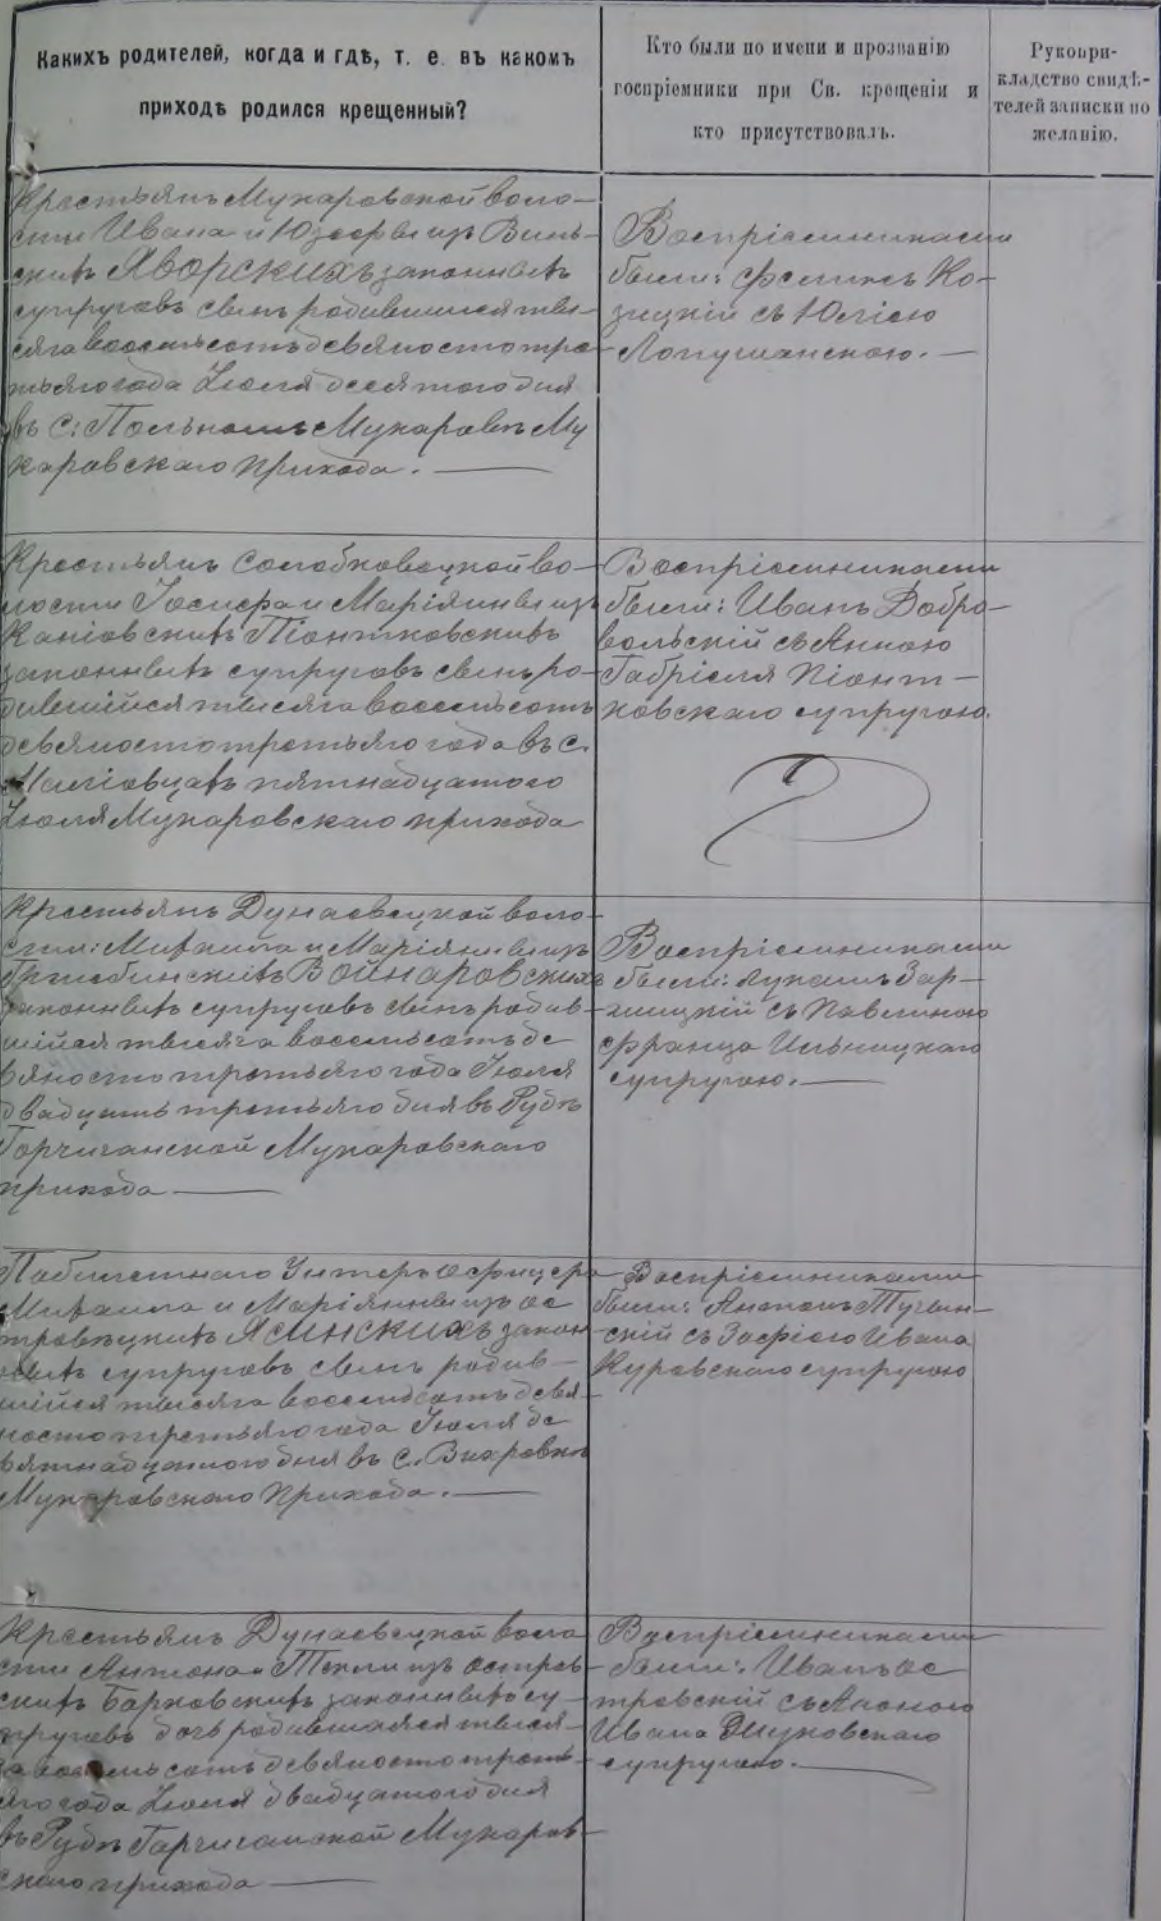 Какихъ родителей, когда и гдѣ, т. е. въ какомъ
приходѣ родился крещенный?
Кто были по имени и прозванію
госпріемники при Св. крещеніи и
кто присутствовалъ.
Рукопри-
кладство свидѣ-
телей записки по
желанію.
Крестьянъ Мукаровской воло-
сти Ивана и Юзефы изъ Винь-
скихъ Яворскихъ законныхъ
супруговъ сынъ родившійся ты-
сяча восемьсотъ девяносто тре-
тьяго года Іюля десятого дня
въ с: Польномъ Мукаровѣ Му
каровскаго прихода.
Воспріемниками
были: Феликсъ Ко-
зицкій съ Юліею
Лопушанскою.
Крестьянъ Солобковецкой во-
лости Іосифа и Маріянны изъ
Каніовскихъ Піонтковскихъ
законныхъ супруговъ сынъ ро-
дившійся тысяча восемьсотъ
девяносто третьяго года въ с.
Маліовцахъ пятнадцатого
Іюля Мукаровскаго прихода
Воспріемниками
были: Иванъ Добро-
вольскій съ Анною
Габріеля Піонт-
ковскаго супругою.
Крестьянъ Дунаевецкой воло-
сти: Михаила и Маріянны изъ
Войнаровскихъ
законныхъ супруговъ сынъ родив-
шійся тысяча восемьсотъ де
вяносто третьяго года Іюля
двадцать третьяго дня въ Рудѣ
Горчичанской Мукаровскаго
прихода
Воспріемниками
были: Лукашъ Зар-
жицкій съ Павлиною
Франца Ильницкаго
супругою.
Побилетнаго Унтеръ офицера
Михаила и Маріянны изъ Ос
тровѣцкихъ Ясинскихъ закон
ныхъ супруговъ сынъ родив-
шійся тысяча восемьсотъ девя-
носто третьяго года Іюля де
вятнадцатого дня въ с. Вихровкѣ
Мукаровскаго прихода.
Воспріемниками
были: Антонъ Тучин-
скій съ Зофіею Ивана
Куровскаго супругою
Крестьянъ Дунаевецкой воло
сти Антона и Текли изъ Остров-
скихъ Барковскихъ законныхъ су-
пруговъ дочь родившаяся тыся-
ча восемьсотъ девяносто треть-
яго года Іюля двадцатого дня
въ Рудѣ Горчичанской Мукаров-
скаго прихода
Воспріемниками
были: Иванъ Ос
тровскій съ Анною
Ивана
супругою.